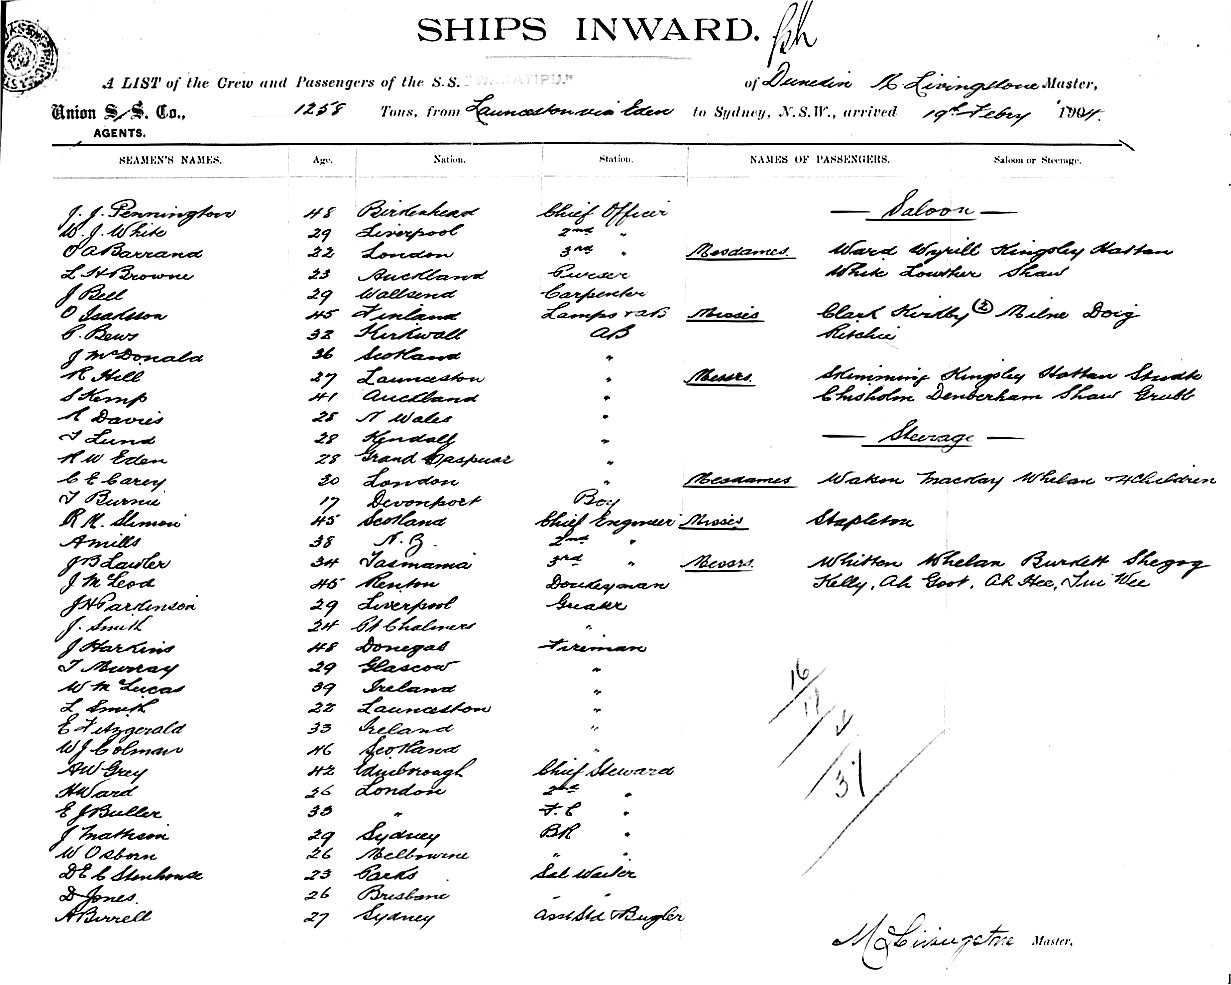 SHIPS INWARD.
A LIST of the Crew and Passengers of the S.S. "WAKATIPU." of Dunedin M Livingstone Master,
Union S. S. Co., 1258 Tons, from Launceston via Eden to Sydney, N.S.W., arrived 19th Febry 1904.
AGENTS.
SEAMEN'S NAMES. Age. Nation. Station. NAMES OF PASSENGERS. Saloon or Steerage.
J. J. Pennington 48 Birkenhead Chief Officer — Saloon —
W. J. White 29 Liverpool 2nd "
O A Barrand 22 London 3rd " Mesdames Ward Wyrill Kingsley Hattan
L H Browne 23 Auckland Purser White Lowther Shaw
J Bell 29 Wallsend Carpenter
O Isaksson 45 Finland Lamps & AB Misses Clark Kirkby (2) Milne Doig
P. Bews 32 Kirkwall AB Ritchie
J McDonald 36 Scotland "
R Hill 27 Launceston " Messrs. Skimming Kingsley Hattan
S Kemp 41 Auckland " Chisholm Denberham Shaw Grubb
R Davies 28 N Wales "
T Lund 28 Kendall "
— Steerage —
R W Eden 28 Grand "
C E Carey 30 London " Mesdames Watson Mackay Whelan & 4 Children
T Burnie 17 Devonport Boy
R M. Simon 45 Scotland Chief Engineer Misses Stapleton
A Mills 38 N. Z. 2nd "
J B Lawler 34 Tasmania 3rd " Messrs. Whitten Whelan Burdett
J McLeod 45 Renton Donkeyman Kelly, Ah Goot, Ah Hee, Wee
J H Parkinson 29 Liverpool Greaser
J. Smith 24 Pt Chalmers "
J Harkins 48 Donegal Fireman
T Murray 29 Glascow "
W McLucas 39 Ireland "
L Smith 22 Launceston "
E Fitzgerald 33 Ireland "
W J Colman 46 Scotland "
A W Grey 42 Edinborough Chief Steward
H Ward 26 London 2nd "
E J Buller 33 " F. C "
J Mathison 29 Sydney BR "
W Osborn 26 Melbourne " "
D E C Stenhouse 23 Parks Sal Waiter
D Jones. 26 Brisbane " "
A Birrell 27 Sydney Asst Std & Bugler
16
17
4
37
M Livingstone Master.